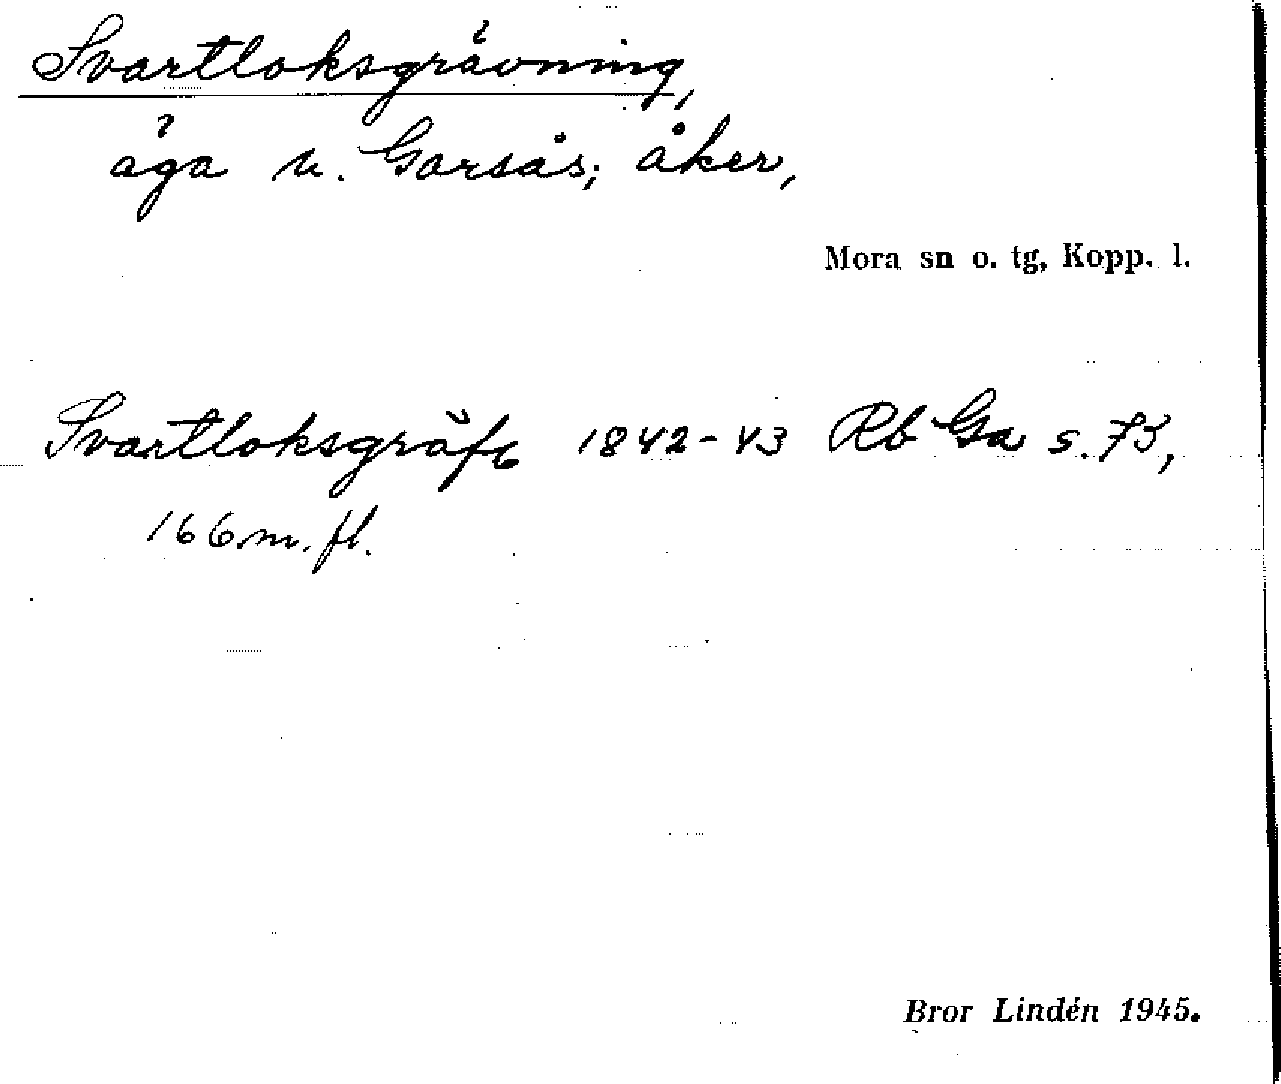 Svartloksgrävning,
äga u. Garsås; åker,
Mora sn o. tg, Kopp. l.
Svartloksgräft 1842-43 Rb Ga s. 73,
166.m.fl.
Bror Lindén 1945.